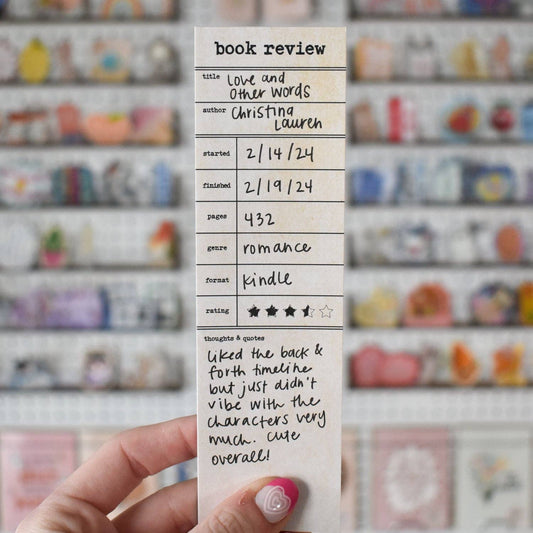 book review
title Love and
Other Words
author Christina
Lauren
started 2/14/24
finished 2/19/24
pages 432
genre romance
format kindle
rating
thoughts & quotes
liked the back &
forth timeline
but just didn't
vibe with the
characters very
much. cute
overall!